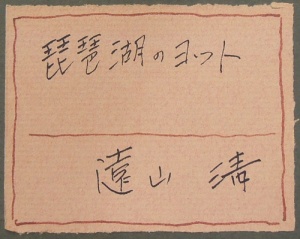 琵琶湖のヨット
遠山 清